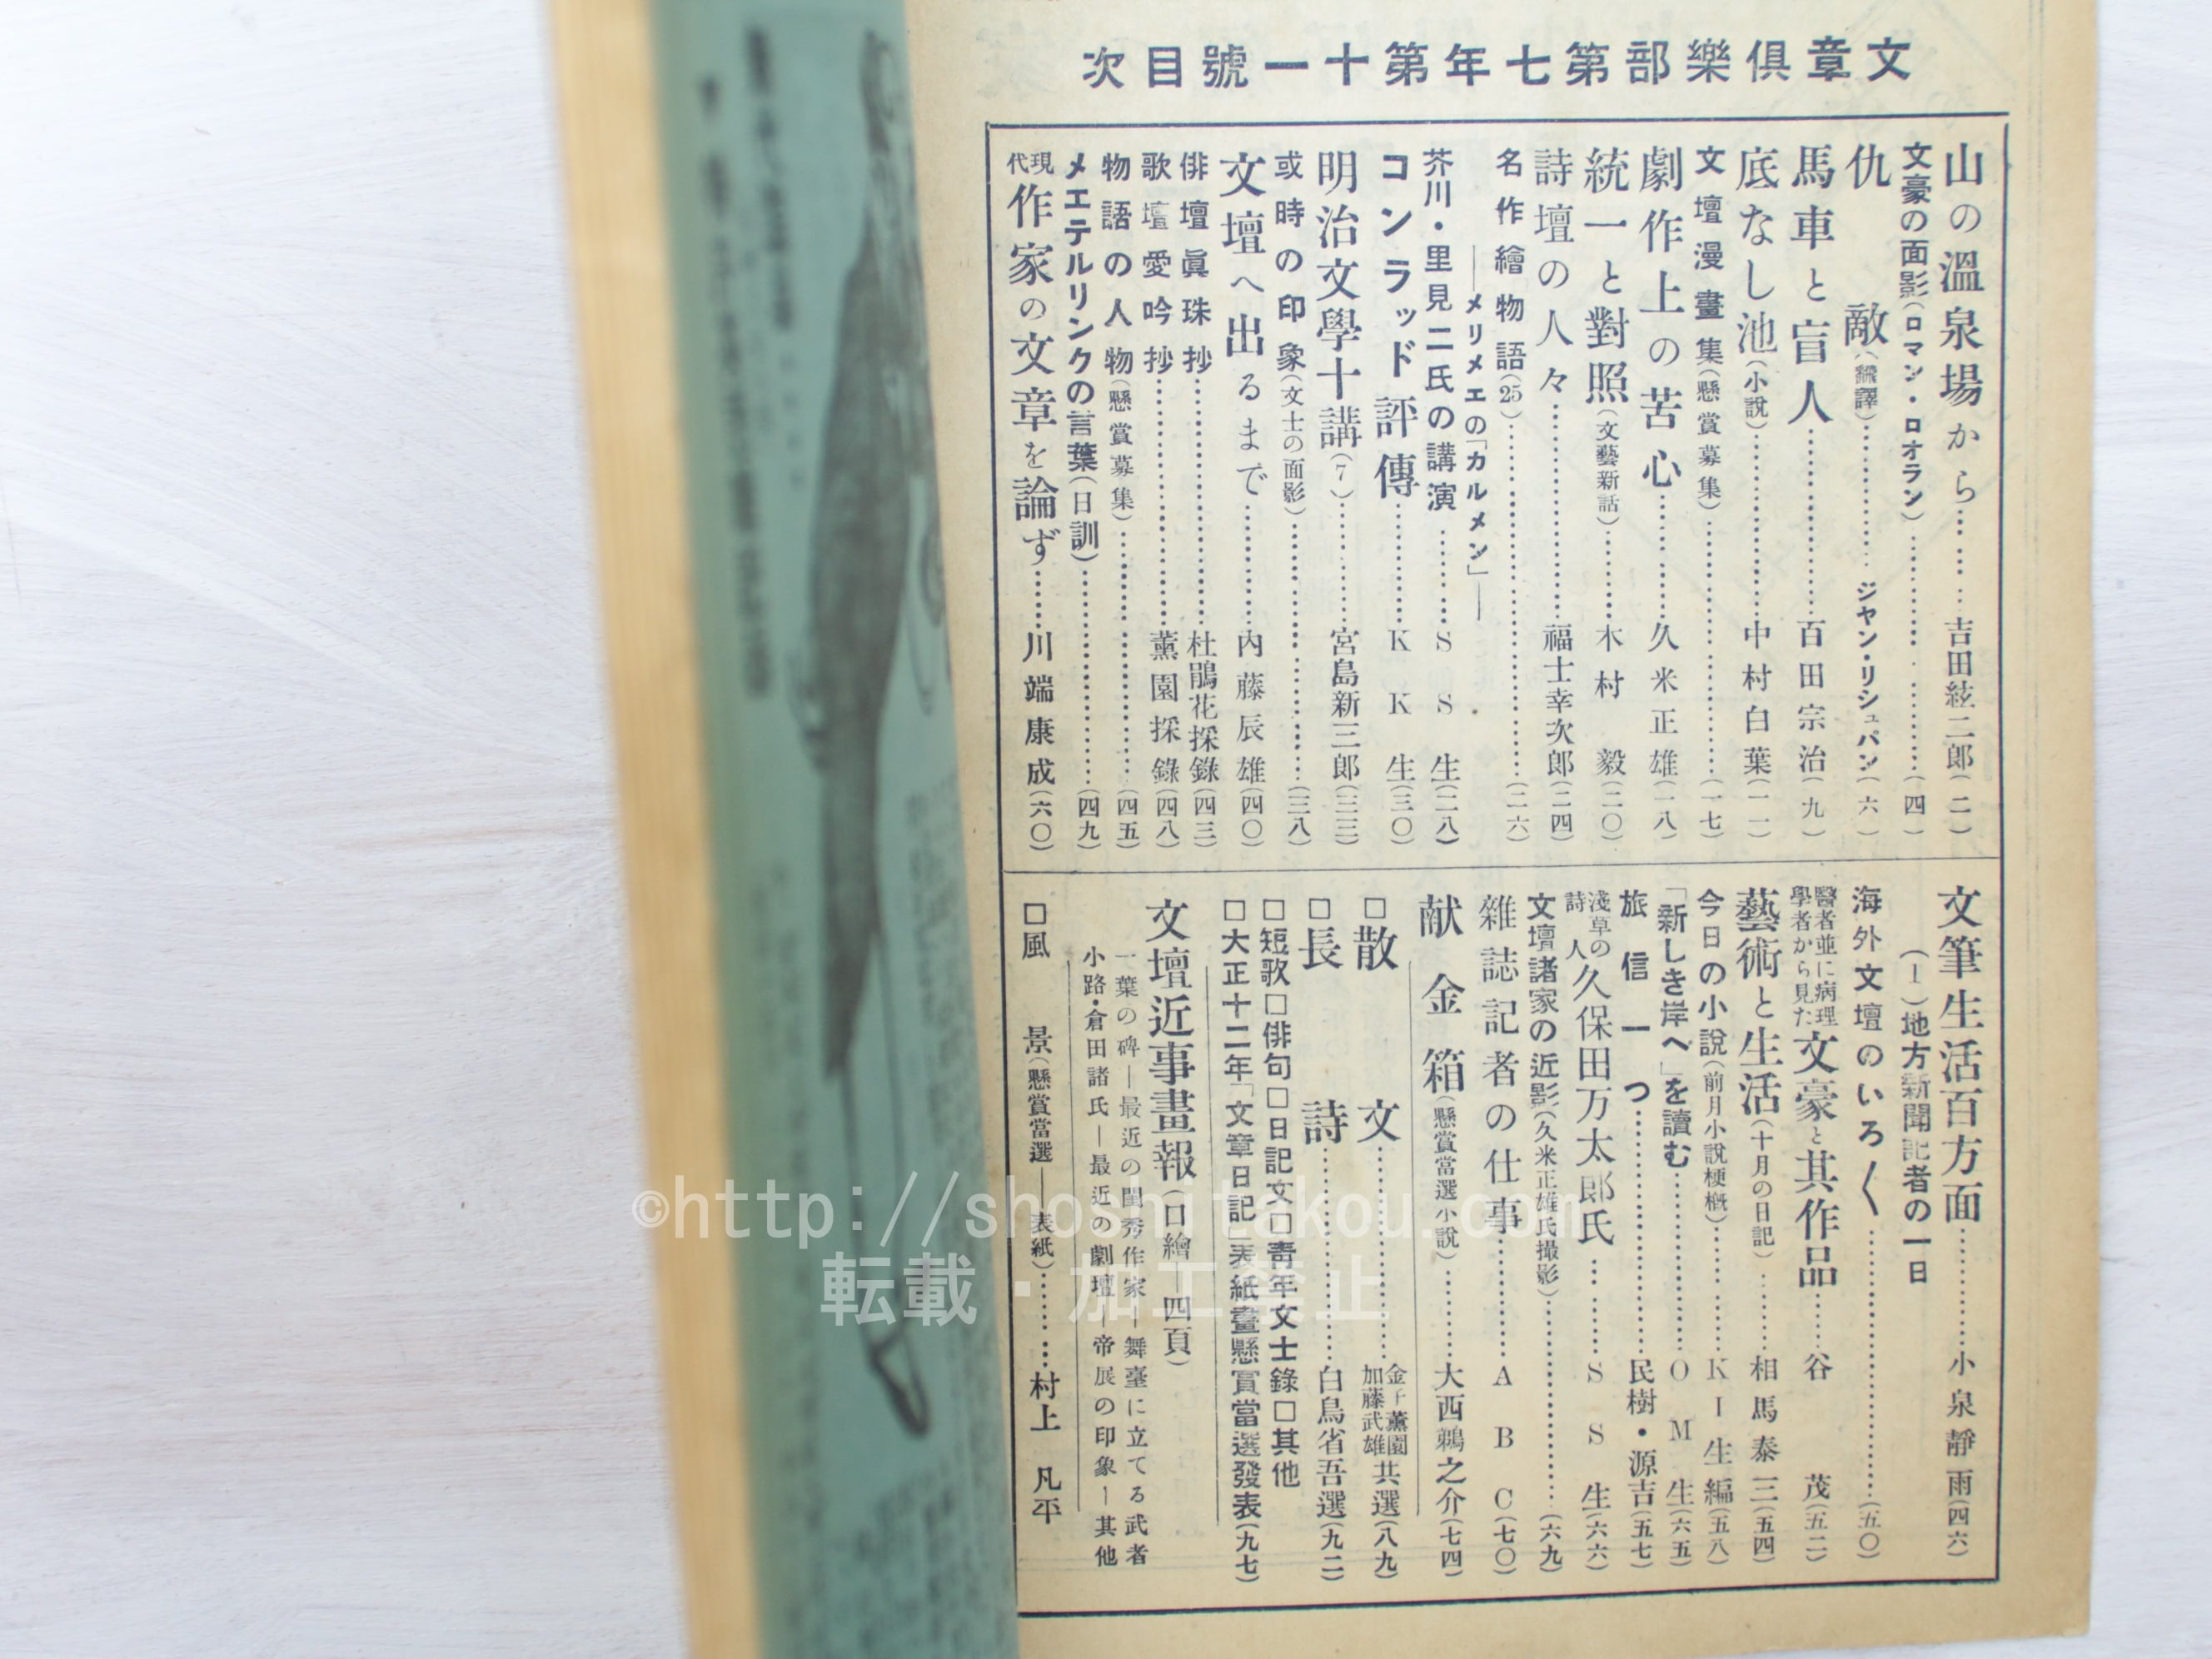 文章俱樂部第七年第十一號目次
山の溫泉場から……吉田絃二郎(二)
文豪の面影(ロマン・ロオラン)……(四)
仇敵(飜譯)……ジャン・リシュパン(六)
馬車と盲人……百田宗治(九)
底なし池(小說)……中村白葉(一一)
文壇漫畫集(懸賞募集)……(一七)
劇作上の苦心……久米正雄(一八)
統一と對照(文藝新話)……木村毅(二〇)
詩壇の人々……福士幸次郎(二四)
名作繪物語(25)……(二六)
――メリメエの「カルメン」――
芥川・里見二氏の講演……SS生(二八)
コンラッド評傳……KK生(三〇)
明治文學十講(7)……宮島新三郎(三三)
或時の印象(文士の面影)……(三八)
文壇へ出るまで……内藤辰雄(四〇)
俳壇眞珠抄……杜鵑花採錄(四三)
歌壇愛吟抄……薰園採錄(四八)
物語の人物(懸賞募集)……(四五)
メエテルリンクの言葉(日訓)……(四九)
現代作家の文章を論ず……川端康成(六〇)
文筆生活百方面……小泉靜雨(四六)
(1)地方新聞記者の一日
海外文壇のいろ〱……(五〇)
醫者並に病理學者から見た文豪と其作品……谷茂(五二)
藝術と生活(十月の日記)……相馬泰三(五四)
今日の小說(前月小說梗槪)……KI生編(五八)
「新しき岸へ」を讀む……OM生(六五)
旅信一つ……民樹・源吉(五七)
淺草の詩人久保田万太郎氏……SS生(六六)
文壇諸家の近影(久米正雄氏撮影)……(六九)
雜誌記者の仕事……ABC(七〇)
献金箱(懸賞當選小說)……大西鵜之介(七四)
□散文……金子薰園加藤武雄共選(八九)
□長詩……白鳥省吾選(九二)
□短歌□俳句□日記文□靑年文士錄□其他
□大正十二年「文章日記」表紙畫懸賞當選發表(九七)
文壇近事畫報(口繪四頁)
一葉の碑―最近の閨秀作家―舞臺に立てる武者
小路・倉田諸氏―最近の劇壇―帝展の印象―其他
□風景(懸賞當選――表紙)……村上凡平
©http://shoshitakou.com
転載・加工禁止